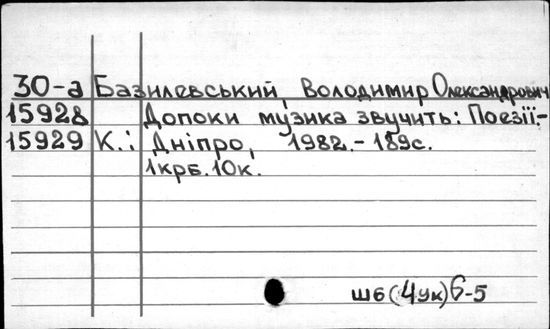 30-а Базилевський, Володимир Олександрович
15928 Допоки музика звучить: Поезії.-
15929 К.: Дніпро, 1982.- 189с.
1крб.10к.
Ш6(4Ук)6-5